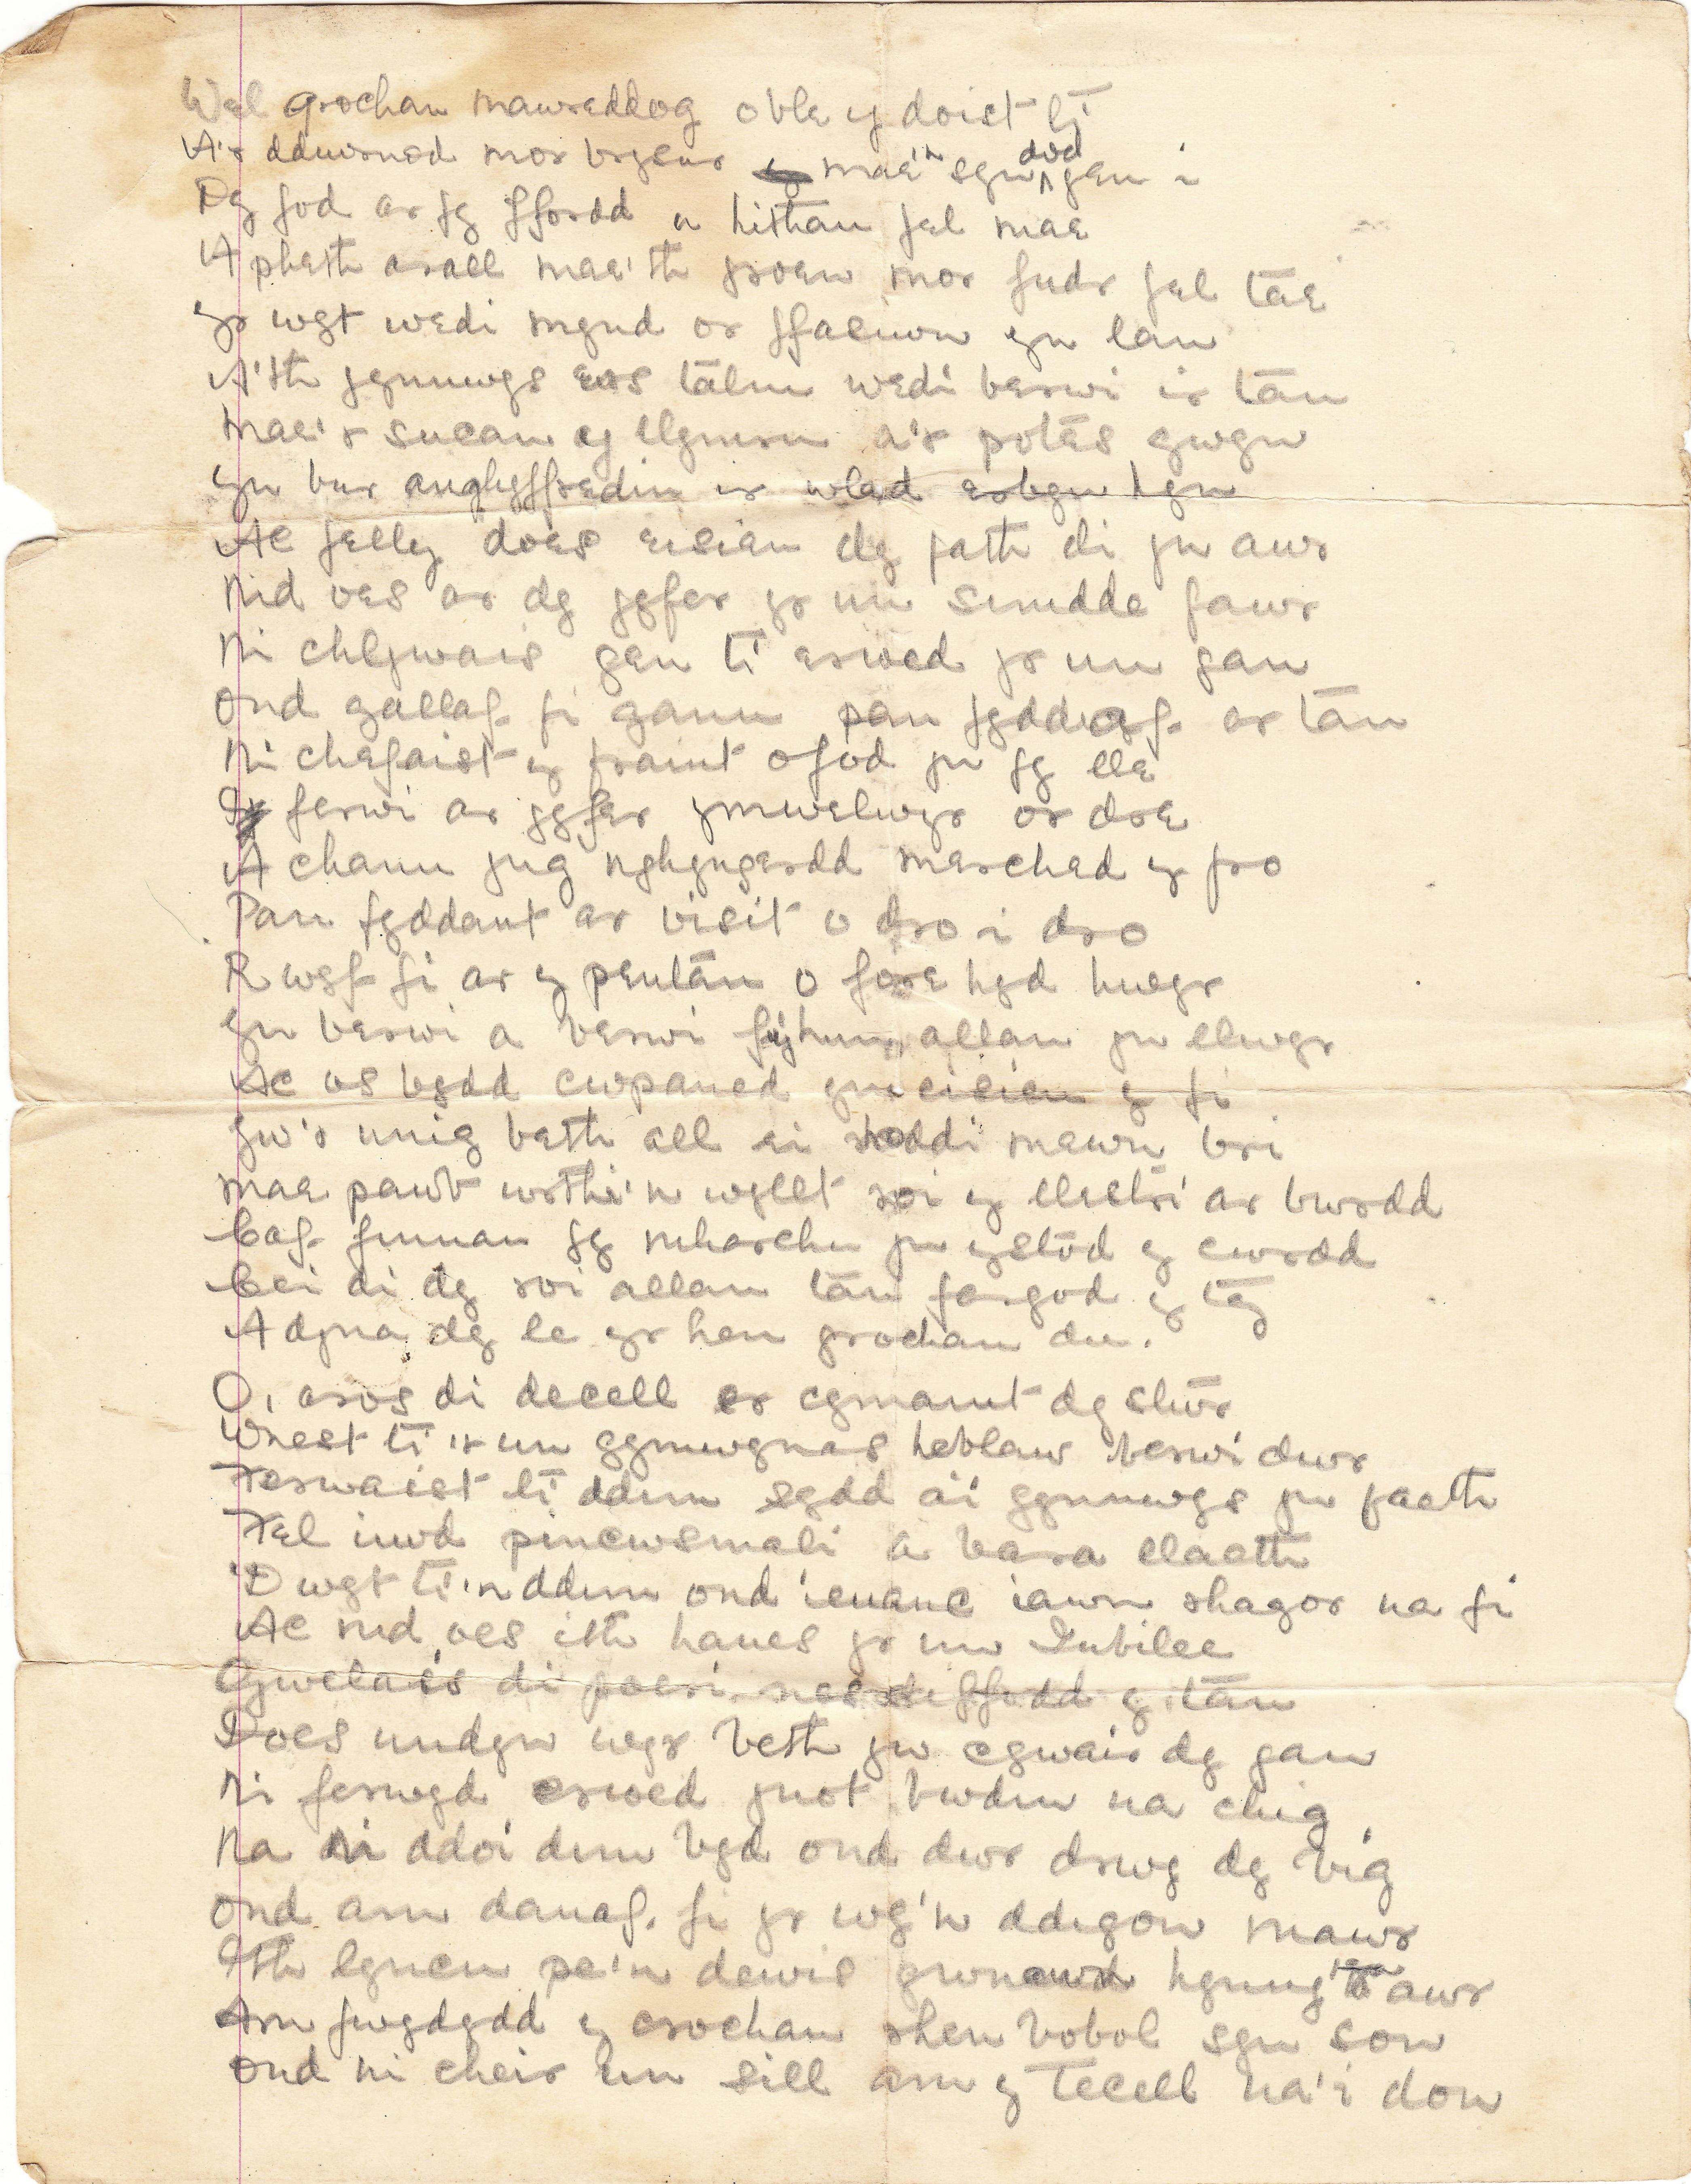 Wel grochan mawreddog o ble y doist ti
A'r ddwrnod mor brysur mae'n syn dod gen i
Dy fod ar fy ffordd u hithau fel mae
A pheth arall mae'th groen mor fudr fel tae
yr wyt wedi mynd or ffasiwn yn lan
A'th gynnwys ers talm wedi berwi ir tân
Mae'r sucan y llymru a'r potes gwyn
yn bur anghyffredin ir wlad erbyn hyn
Ac felly does eisiau dy fath di yn awr
Nid oes ar dy gyfer yr un simdde fawr
Ni chlywais gen ti erioed yr un gan
Ond gallaf fi ganu pan fyddaf ar tân
Ni chefaist y fraint o fod yn fy lle
I ferwi ar gyfer ymwelwyr or dre
A chanu yng nghyngerdd merched y fro
Pan fyddant ar visit o dro i dro
Rwyf fi ar y pentân o fore hyd hwyr
yn berwi a berwi fy hun allan yn llwyr
Ac os bydd cwpaned yn eisieu y fi
yw'r unig beth all ei roddi mewn bri
mae pawb wrthi'n wyllt roi y llestri ar bwrdd
Caf finnau fy mharchu yn ystod y cwrdd
Cei di dy roi allan tan fargod y tŷ
A dyna dy le yr hen grochan du.
O, aros di decell er cymaint dy stŵr
Wnest ti ir un gymwynas heblaw berwi dwr
Ferwaist ti ddim sydd a'i gynnwys yn faeth
Fel iwd pincws mali a bara llaeth
'Dwyt ti'n ddim ond ieuanc iawn rhagor na fi
Ac nid oes ith hanes yr un Iubilee
Gwelais di poeri nes diffodd y tân
Does undyn wyr beth yw cywair dy gan
Ni ferwyd erioed ynot bwdin na chig
Na ni ddoi dim byd ond dwr drwy dy big
Ond am danaf fi yr wy'n ddigon mawr
Ith lyncu pe'n dewis grwncwd hynny yn awr
Am fwydydd y crochan rhen bobol syn son
Ond ni cheir un sill am y Tecell na'i don